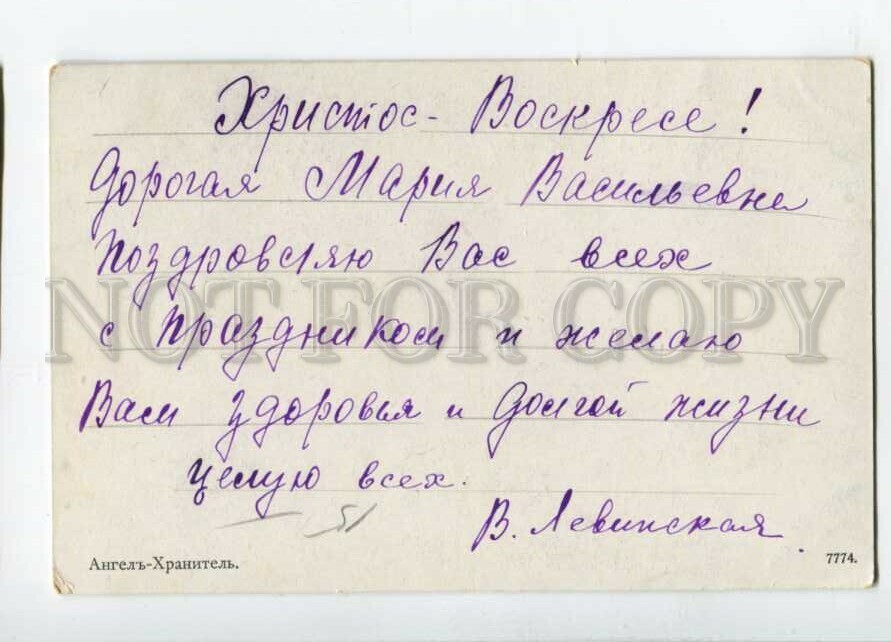 Христос - Воскресе!
Дорогая Мария Васильевна
поздровляю Вас всех
с праздником и желаю
Вам здоровья и долгой жизни
целую всех.
51
В. Левинская.
Ангелъ-Хранитель.
7774.
NOT FOR COPY